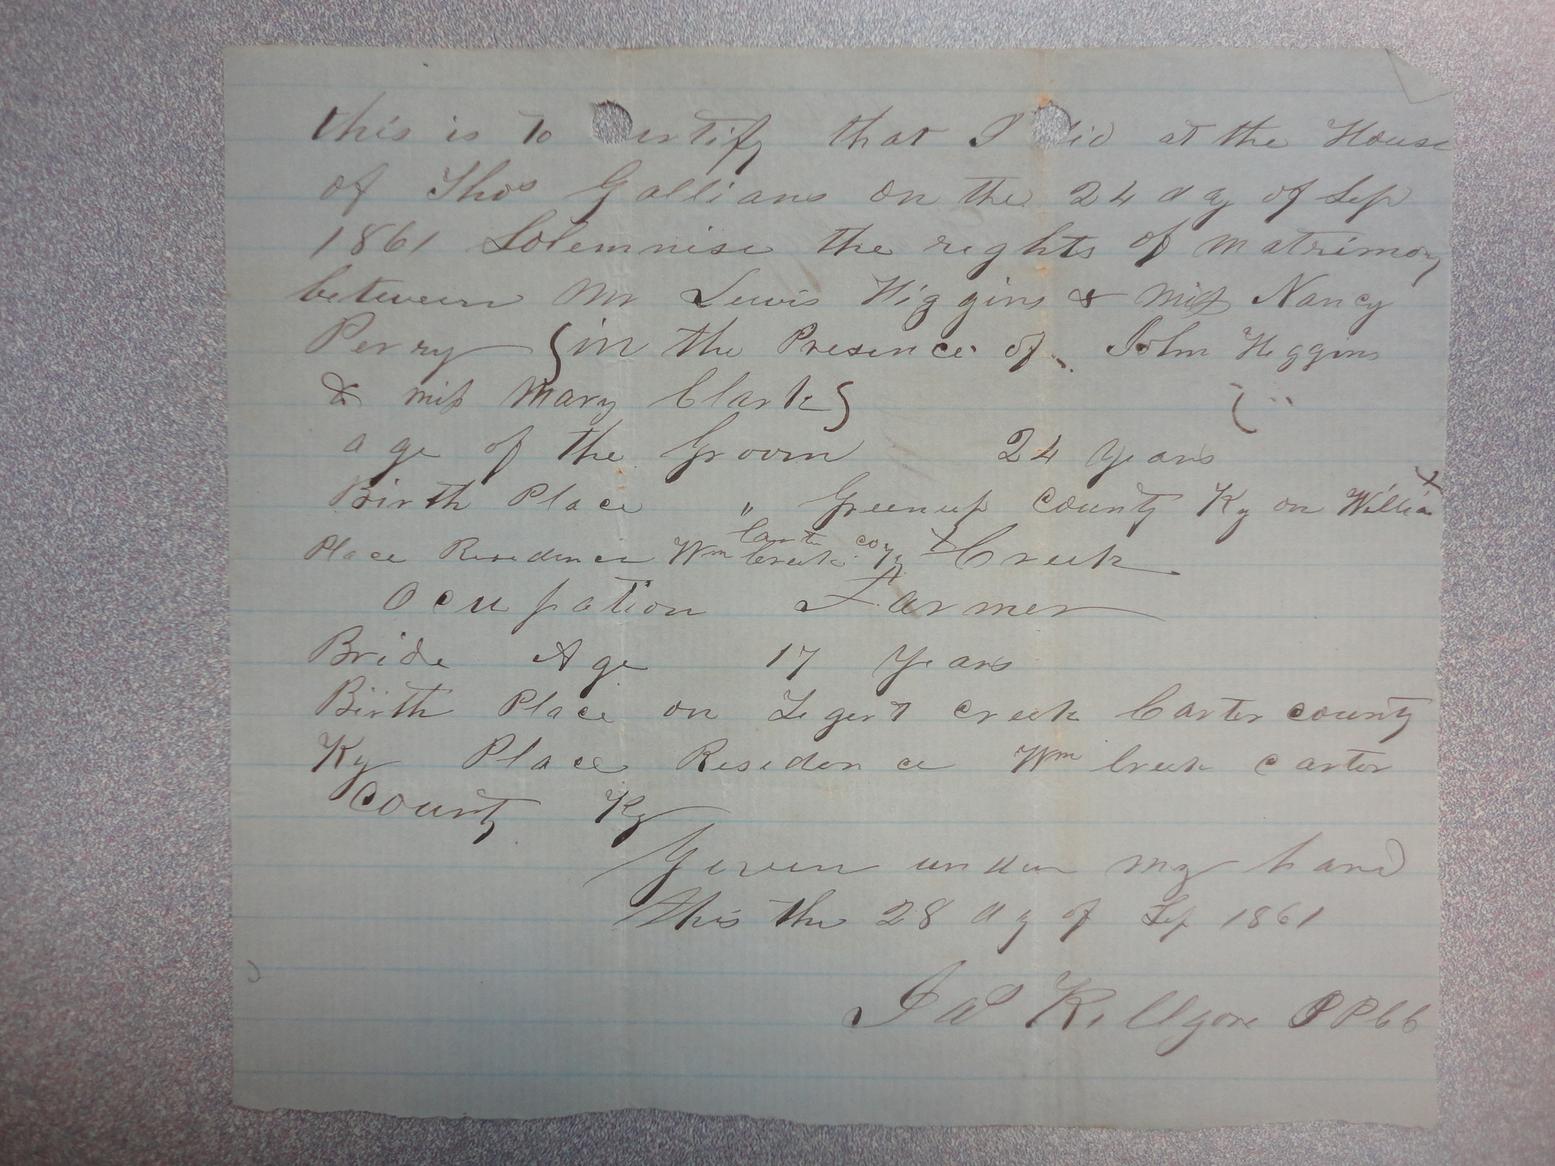 this is to ertify that I did at the House
of Thos Gallians on the 24 day of Sep
1861 Solemnise the rights of matrimony
between Mr Lewis Higgins & miss Nancy
Perry {in the Presence of John Higgins
& miss Mary Clark}
age of the Groom 24 years
Birth Place " Greenup County Ky on William
Place Residence Wm Creek Carter coy Ky Creek
Ocupation Farmer
Bride Age 17 Years
Birth Place on Tygert creek Carter county
Ky Place Residence Wm Creek Carter
County Ky
Given under my hand
this the 28 day of Sep 1861
Jas Killgore